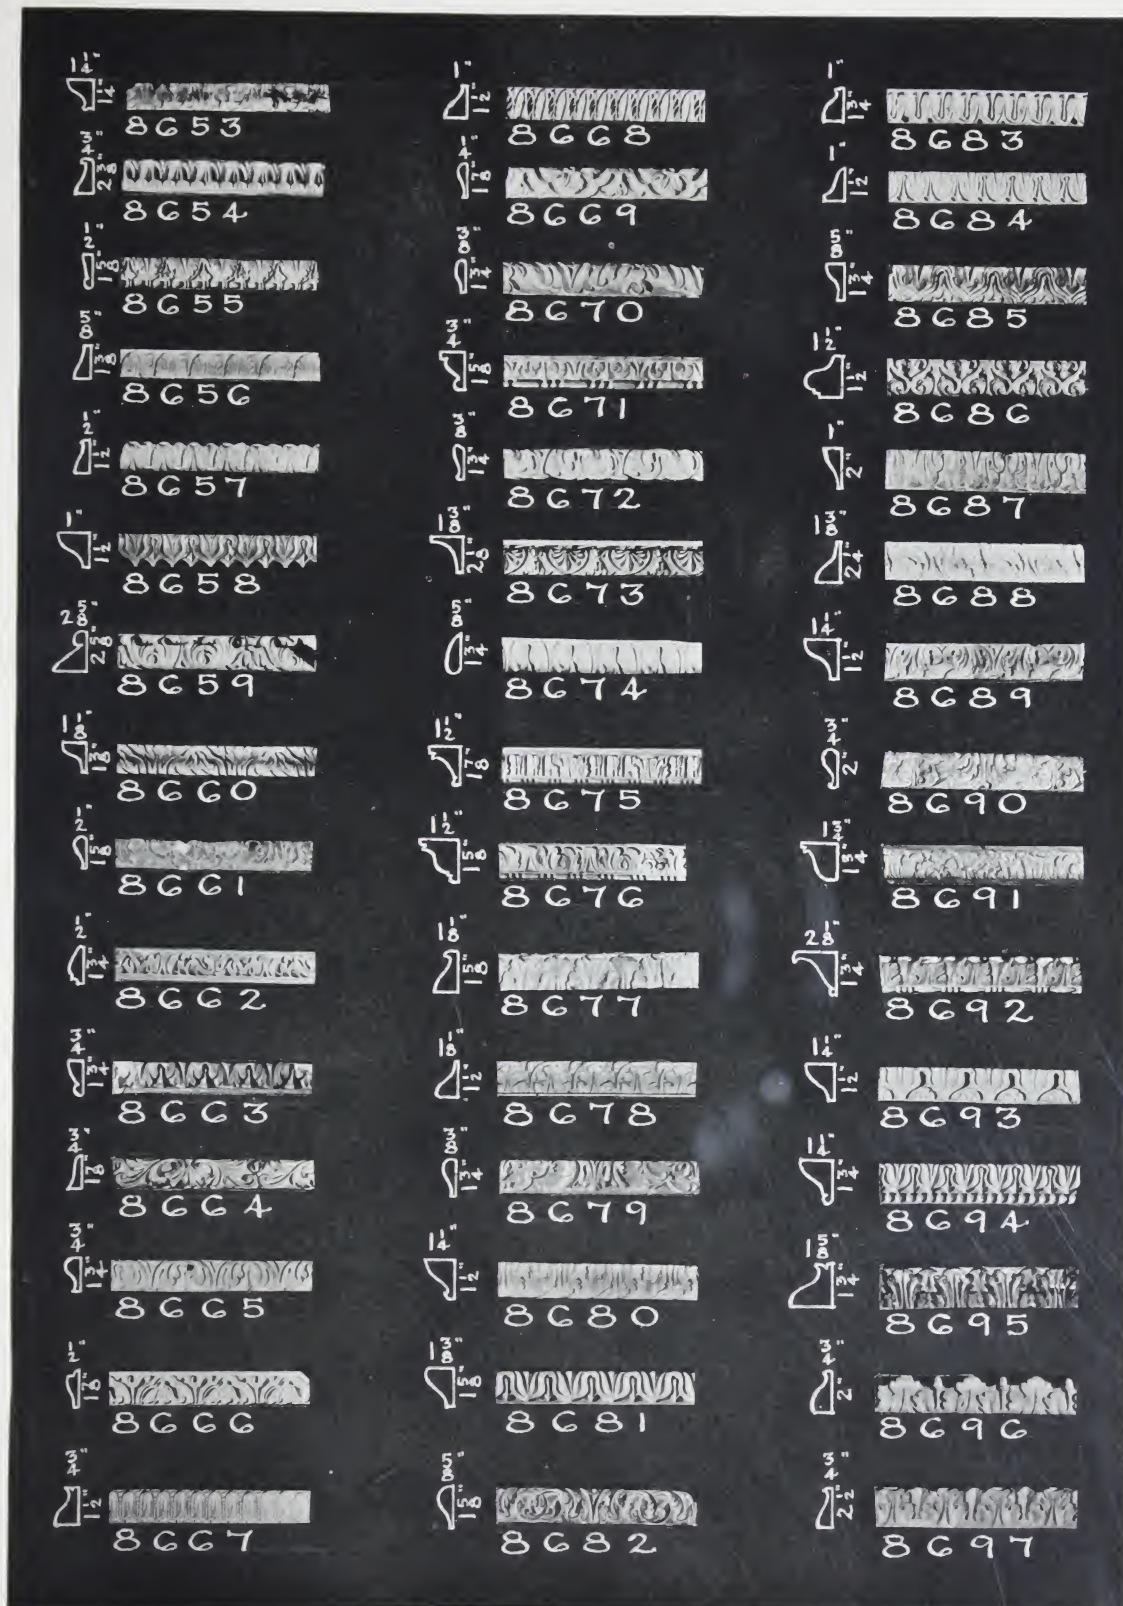 1 1/4"
1 1/4"
8653
3/4"
2 3/8"
8654
1/2"
1 5/8"
8655
5/8"
1 3/8"
8656
1/2"
1 1/2"
8657
1"
1 1/2"
8658
2 5/8"
2 5/8"
8659
1 1/8"
1 3/8"
8660
1/2"
1 5/8"
8661
1/2"
1 3/4"
8662
3/4"
1 3/4"
8663
3/4"
1 7/8"
8664
3/4"
1 3/4"
8665
1/2"
1 7/8"
8666
3/4"
1 1/2"
8667
1"
1 1/2"
8668
1/4"
1 7/8"
8669
3/8"
1 3/4"
8670
3/4"
1 5/8"
8671
3/8"
1 3/4"
8672
1 3/8"
2 1/8"
8673
5/8"
1 3/4"
8674
1 1/2"
1 7/8"
8675
1 1/2"
1 5/8"
8676
1 1/8"
1 5/8"
8677
1 1/8"
1 1/2"
8678
3/8"
1 3/4"
8679
1 1/4"
1 1/2"
8680
1 3/8"
1 5/8"
8681
5/8"
1 5/8"
8682
1"
1 3/4"
8683
1"
1 1/2"
8684
5/8"
1 3/4"
8685
1 1/2"
1 1/2"
8686
1"
2"
8687
1 3/8"
2 1/4"
8688
1 1/4"
1 1/2"
8689
3/4"
2"
8690
1 3/4"
1 3/4"
8691
2 1/8"
1 3/4"
8692
1 1/4"
1 1/2"
8693
1 1/4"
1 3/4"
8694
1 5/8"
1 3/4"
8695
3/4"
2"
8696
3/4"
2 1/2"
8697